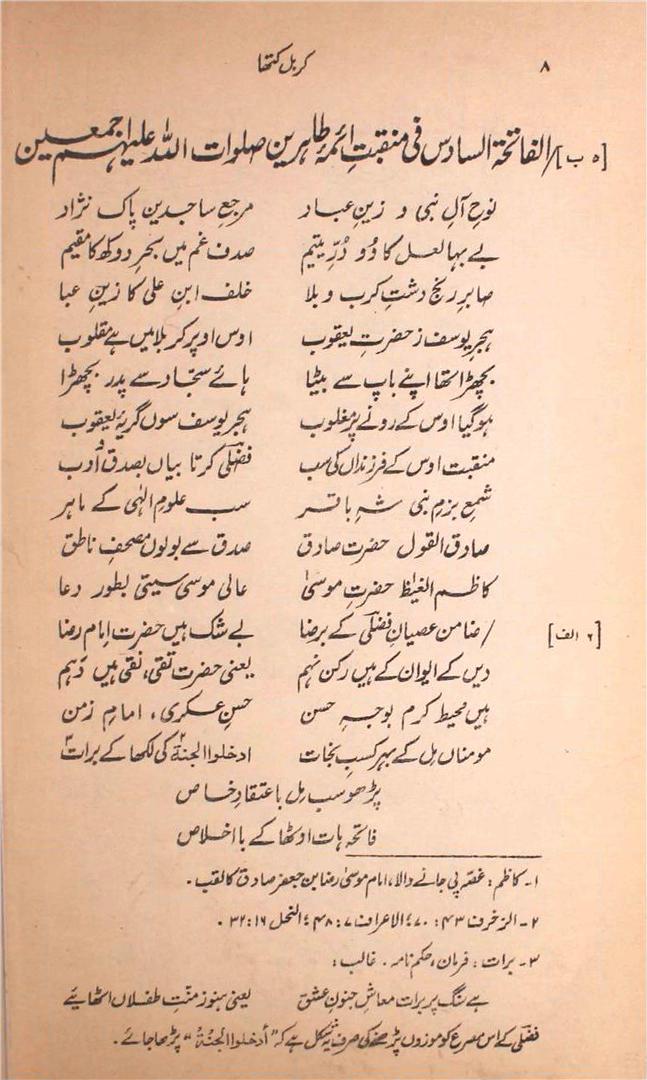 ۸ کربل کتھا
[۵ ب] /الفاتحۃ السادس فی منقبتِ ائمۂ طاہرین صلوات اللہ علیہم اجمعین
نوحِ آلِ نبی و زینِ عباد مرجعِ ساجدین پاک نژاد
بے بہا لعل کا دُو دُرِّ یتیم صدف غم میں بحرِ دوکھ کا مقیم
صابرِ رنجِ دشتِ کرب و بلا خلف ابنِ علی کا زینِ عبا
ہجرِ یوسف ز حضرتِ یعقوب اوس اوپر کربلا میں ہے مقلوب
بچھڑا تھا اپنے باپ سے بیٹا ہائے سجّاد سے پدر بچھڑا
ہوگیا اوس کے رونے پر مغلوب ہجرِ یوسف سوں گریۂ یعقوب
منقبت اوس کے فرزنداں کی سب فضلی کرتا بیاں بصدق و ادب
شمعِ بزمِ نبی شہِ باقر سب علومِ الٰہی کے ماہر
صادق القول حضرت صادق صدق سے بولوں مصحفِ ناطق
کاظم الغیظ حضرتِ موسیٰ عالی موسی سیتی بطور دعا
[۶ الف] /ضامن عصیانِ فضلی کے برضا بے شک ہیں حضرت امام رضا
دیں کے ایوان کے ہیں رکن نہم یعنی حضرت تقی، نقی ہیں دہم
ہیں محیط کرم بوجہِ حسن حسنِ عسکری، امامِ زمن
مومناں مل کے بہر کسبِ نجات ادخلوا الجنۃ۲ کی لکھا کے برات۳
پڑھو سب مل با عتقادِ خاص
فاتحہ ہات اوٹھا کے با اخلاص
۱۔ کاظم: غصّہ پی جانے والا، امام موسیٰ رضا بن جعفر صادق کا لقب۔
۲۔ الزخرف ۴۳: ۷۰؛ الاعراف ۷: ۴۸؛ النحل ۱۶: ۳۲۔
۳۔ برات: فرمان، حکم نامہ۔ غالب:
ہے سنگ پر براتِ معاشِ جنونِ عشق یعنی ہنوز منّتِ طفلاں اٹھایئے
فضلی کے اس مصرع کو موزوں پڑھنے کی صرف یہ شکل ہے کہ "اُدخلوا لجنۃُ" پڑھا جائے۔